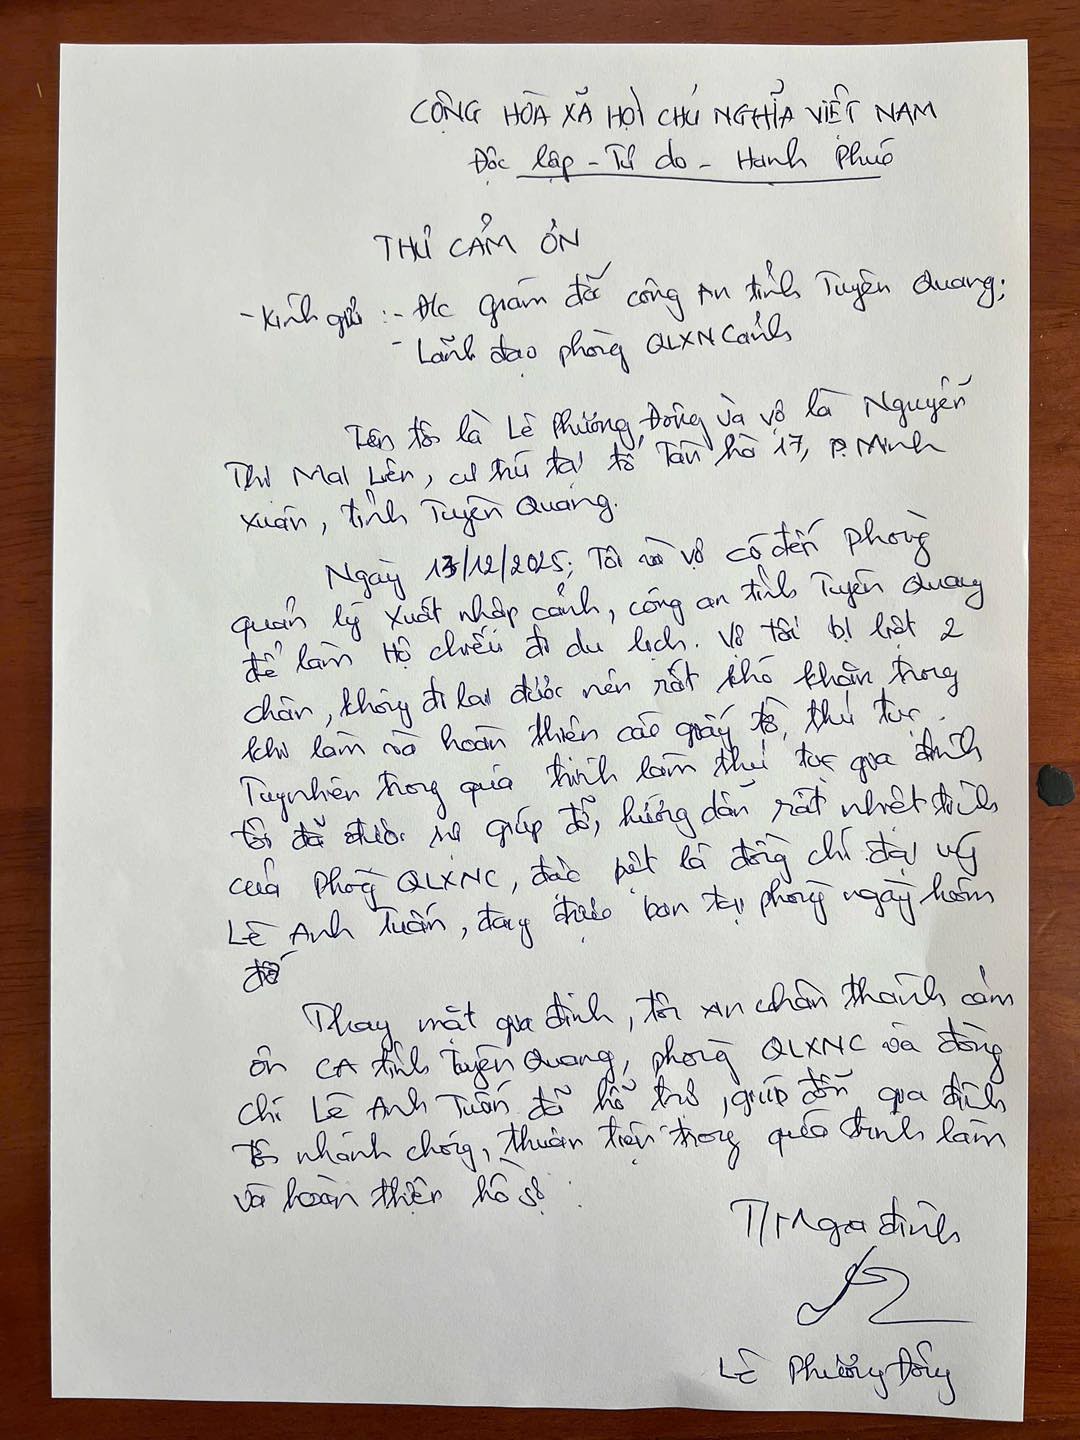 CỘNG HÒA XÃ HỘI CHỦ NGHĨA VIỆT NAM
Độc lập - Tự do - Hạnh Phúc
THƯ CẢM ƠN
- Kính gửi : - Đ/c giám đốc công An tỉnh Tuyên Quang;
- Lãnh đạo phòng QLXNCảnh
Tên tôi là Lê Phương Đông và vợ là Nguyễn
Thị Mai Liên, cư trú tại tổ Tân hà 17, P. Minh
Xuân, tỉnh Tuyên Quang.
Ngày 13/12/2025; Tôi và vợ có đến phòng
quản lý xuất nhập cảnh, công an tỉnh Tuyên Quang
để làm Hộ chiếu đi du lịch. Vợ tôi bị liệt 2
chân, không đi lại được nên rất khó khăn trong
khi làm và hoàn thiện các giấy tờ, thủ tục.
Tuy nhiên trong quá trình làm thủ tục gia đình
tôi đã được sự giúp đỡ, hướng dẫn rất nhiệt tình
của phòng QLXNC, đặc biệt là đồng chí đại úy
Lê Anh Tuấn, đang trực ban tại phòng ngày hôm
đó
Thay mặt gia đình, tôi xin chân thành cảm
ơn CA tỉnh Tuyên Quang, phòng QLXNC và đồng
chí Lê Anh Tuấn đã hỗ trợ, giúp đỡ gia đình
tôi nhanh chóng, thuận tiện trong quá trình làm
và hoàn thiện hồ sơ.
T/M gia đình
Lê Phương Đông